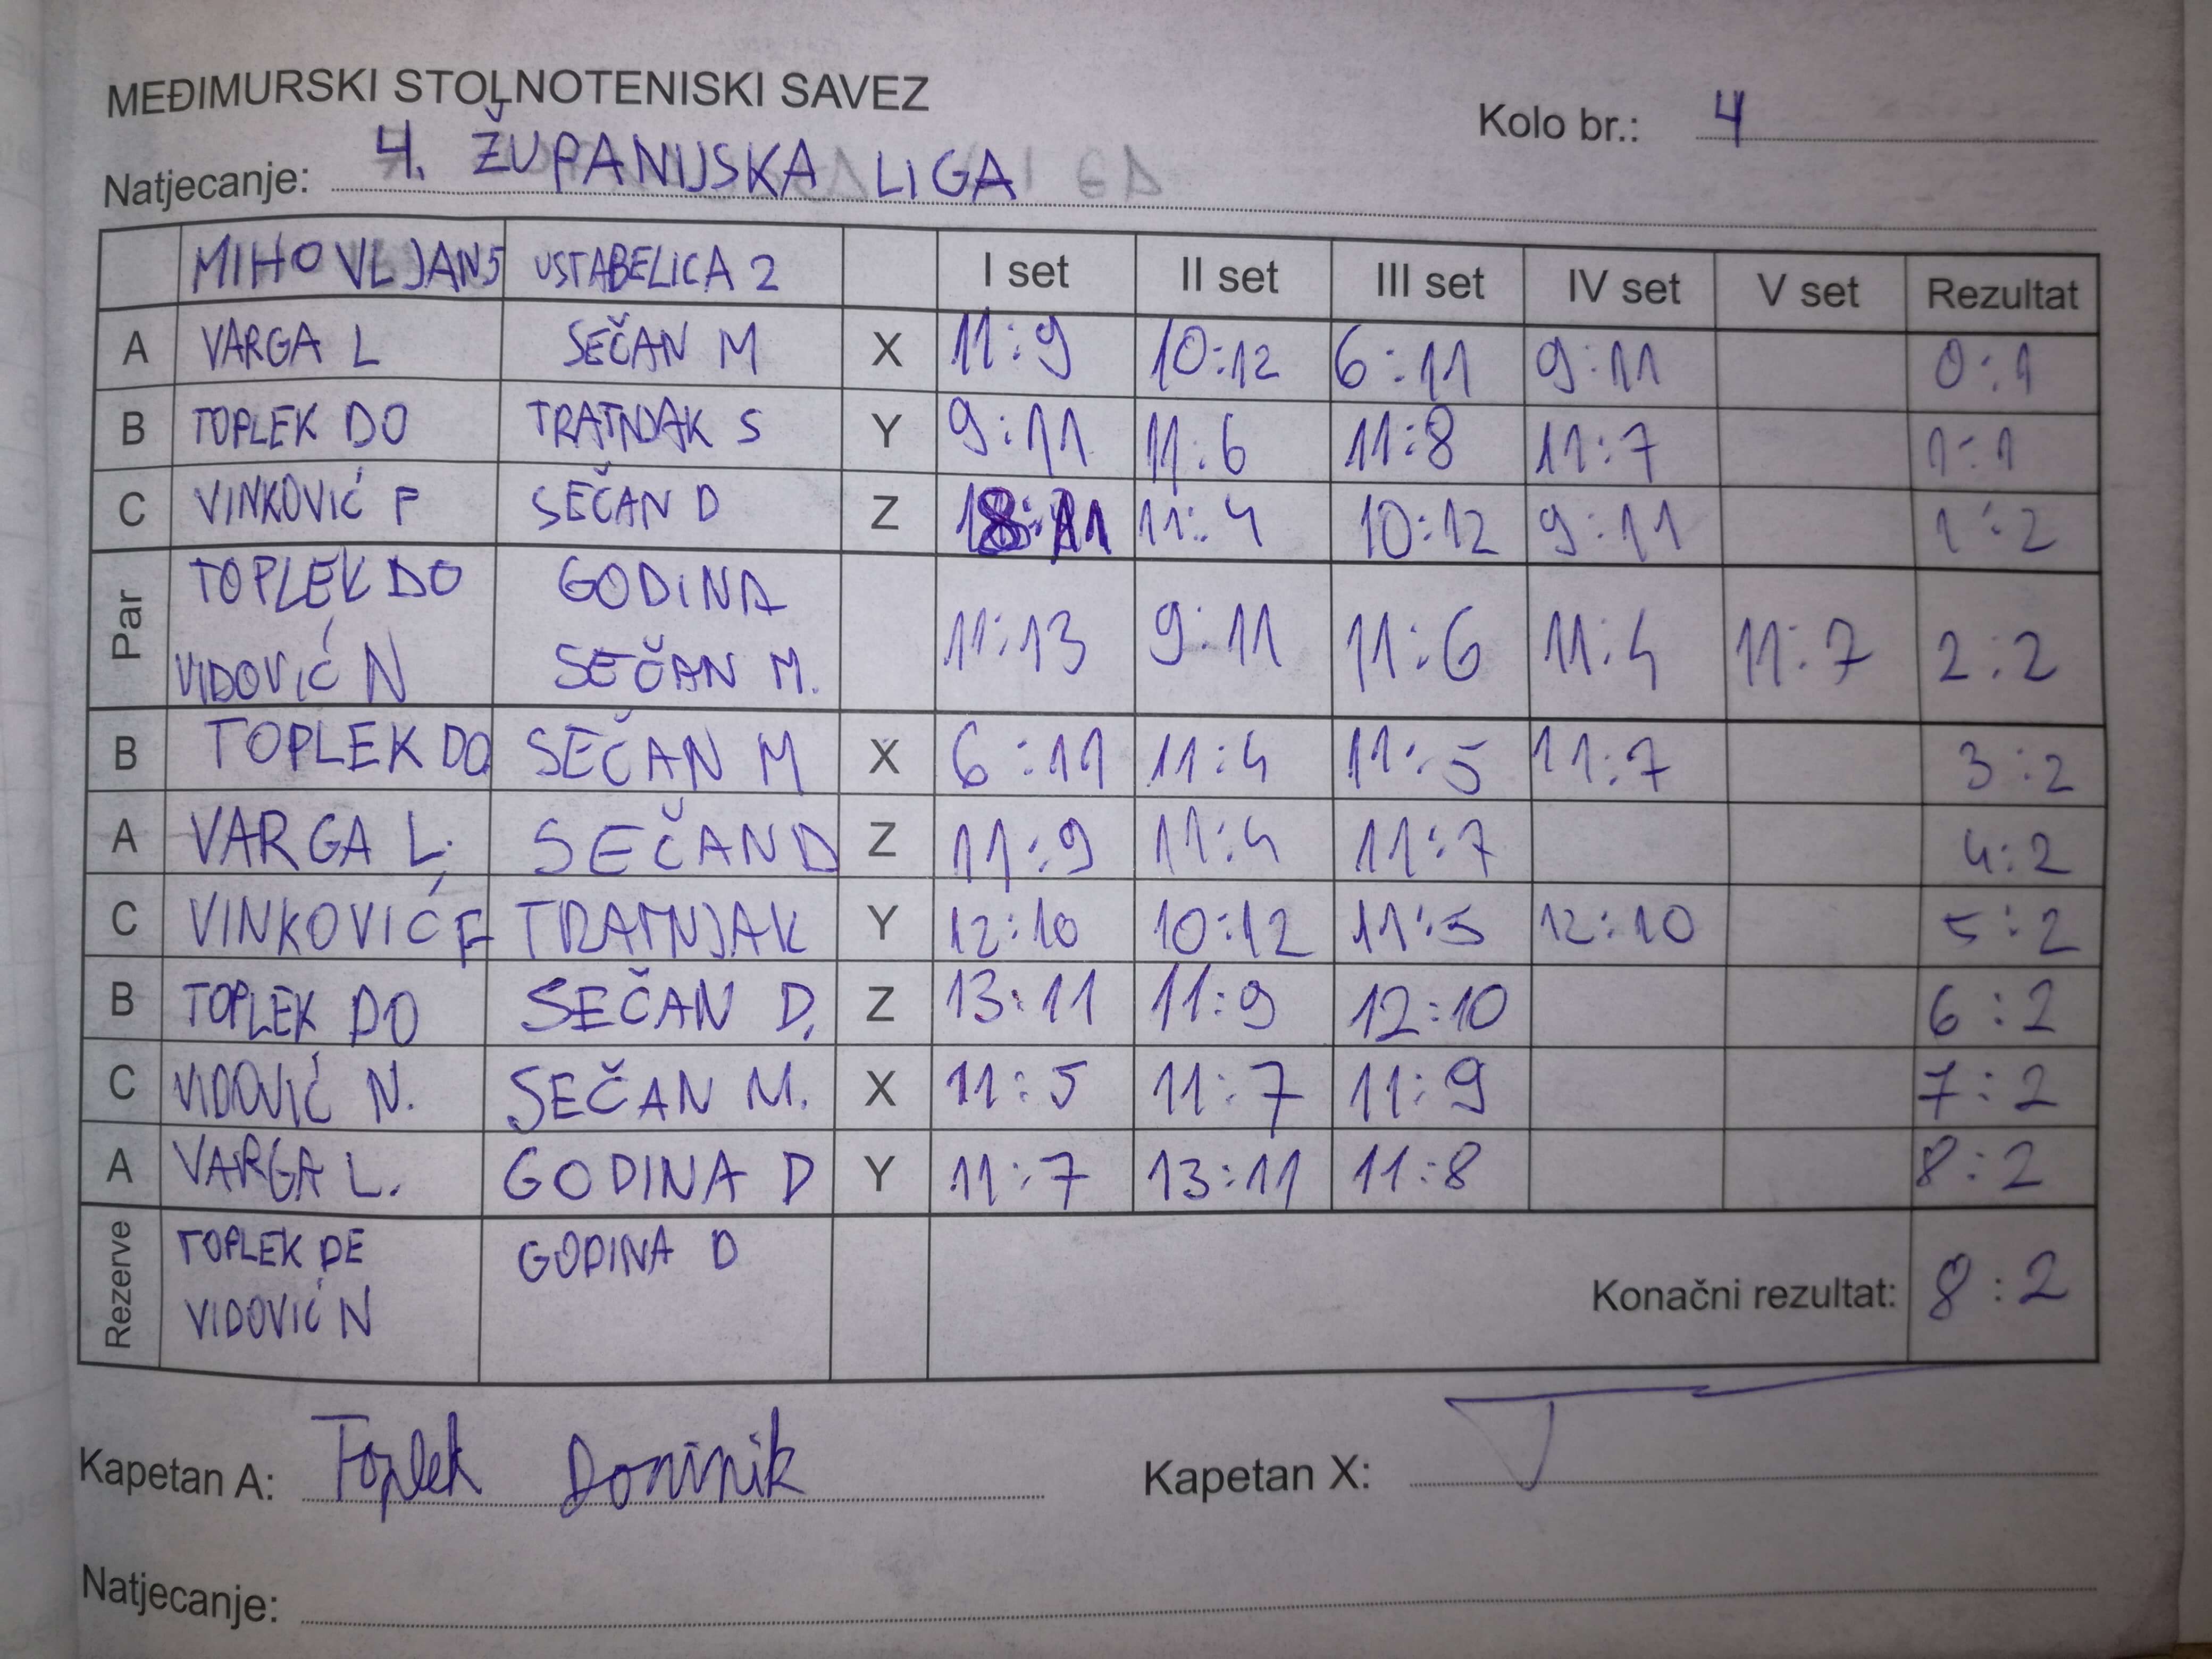 MEĐIMURSKI STOLNOTENISKI SAVEZ
Kolo br.: 4
Natjecanje: 4. ŽUPANIJSKA LIGA
MIHOVLJAN 5 USTABELICA 2 I set II set III set IV set V set Rezultat
A VARGA L SEČAN M X 11:9 10:12 6:11 9:11 0:1
B TOPLEK DO TRATNJAK S Y 9:11 11:6 11:8 11:7 1:1
C VINKOVIĆ F SEČAN D Z 8:11 11:4 10:12 9:11 1:2
Par TOPLEK DO GODINA
VIDOVIĆ N SEČAN M. 11:13 9:11 11:6 11:4 11:7 2:2
B TOPLEK DO SEČAN M X 6:11 11:4 11:5 11:7 3:2
A VARGA L. SEČAN D Z 11:9 11:4 11:7 4:2
C VINKOVIĆ F TRATNJAK Y 12:10 10:12 11:5 12:10 5:2
B TOPLEK DO SEČAN D. Z 13:11 11:9 12:10 6:2
C VIDOVIĆ N. SEČAN M. X 11:5 11:7 11:9 7:2
A VARGA L. GODINA D Y 11:7 13:11 11:8 8:2
Rezerve TOPLEK DE GODINA D
VIDOVIĆ N Konačni rezultat: 8:2
Kapetan A: Toplek Dominik Kapetan X:
Natjecanje: